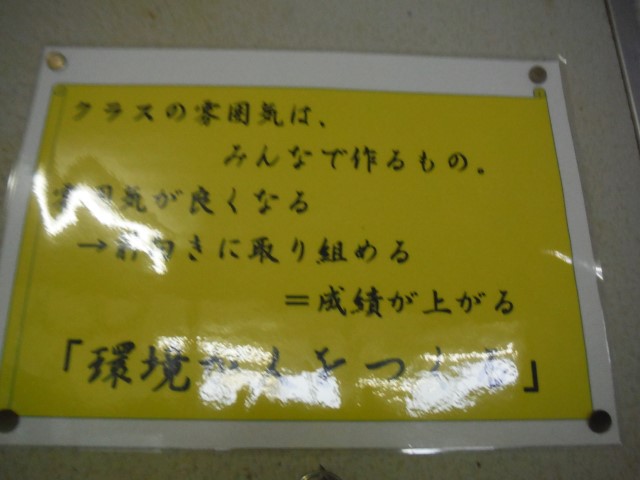 クラスの雰囲気は、
みんなで作るもの。
雰囲気が良くなる
→前向きに取り組める
＝成績が上がる
「環境が人をつくる」